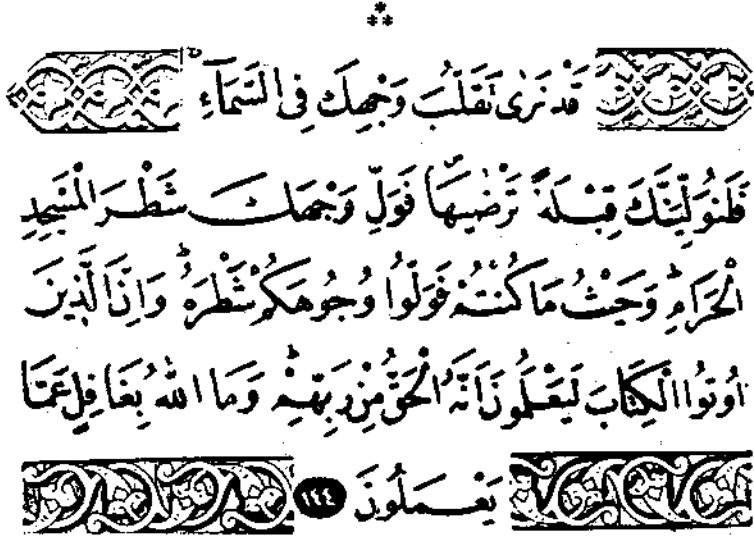 قَدْ نَرٰى تَقَلُّبَ وَجْهِكَ فِى السَّمَآءِ
فَلَنُوَلِّيَنَّكَ قِبْلَةً تَرْضٰيهَا فَوَلِّ وَجْهَكَ شَطْرَ الْمَسْجِدِ
الْحَرَامِ ۜ وَحَيْثُ مَا كُنْتُمْ فَوَلُّوا وُجُوهَكُمْ شَطْرَهُ ۜ وَاِنَّ الَّذِينَ
اُوتُوا الْكِتَابَ لَيَعْلَمُونَ اَنَّهُ الْحَقُّ مِنْ رَبِّهِمْ ۜ وَمَا اللّٰهُ بِغَافِلٍ عَمَّا
يَعْمَلُونَ ١٤٤